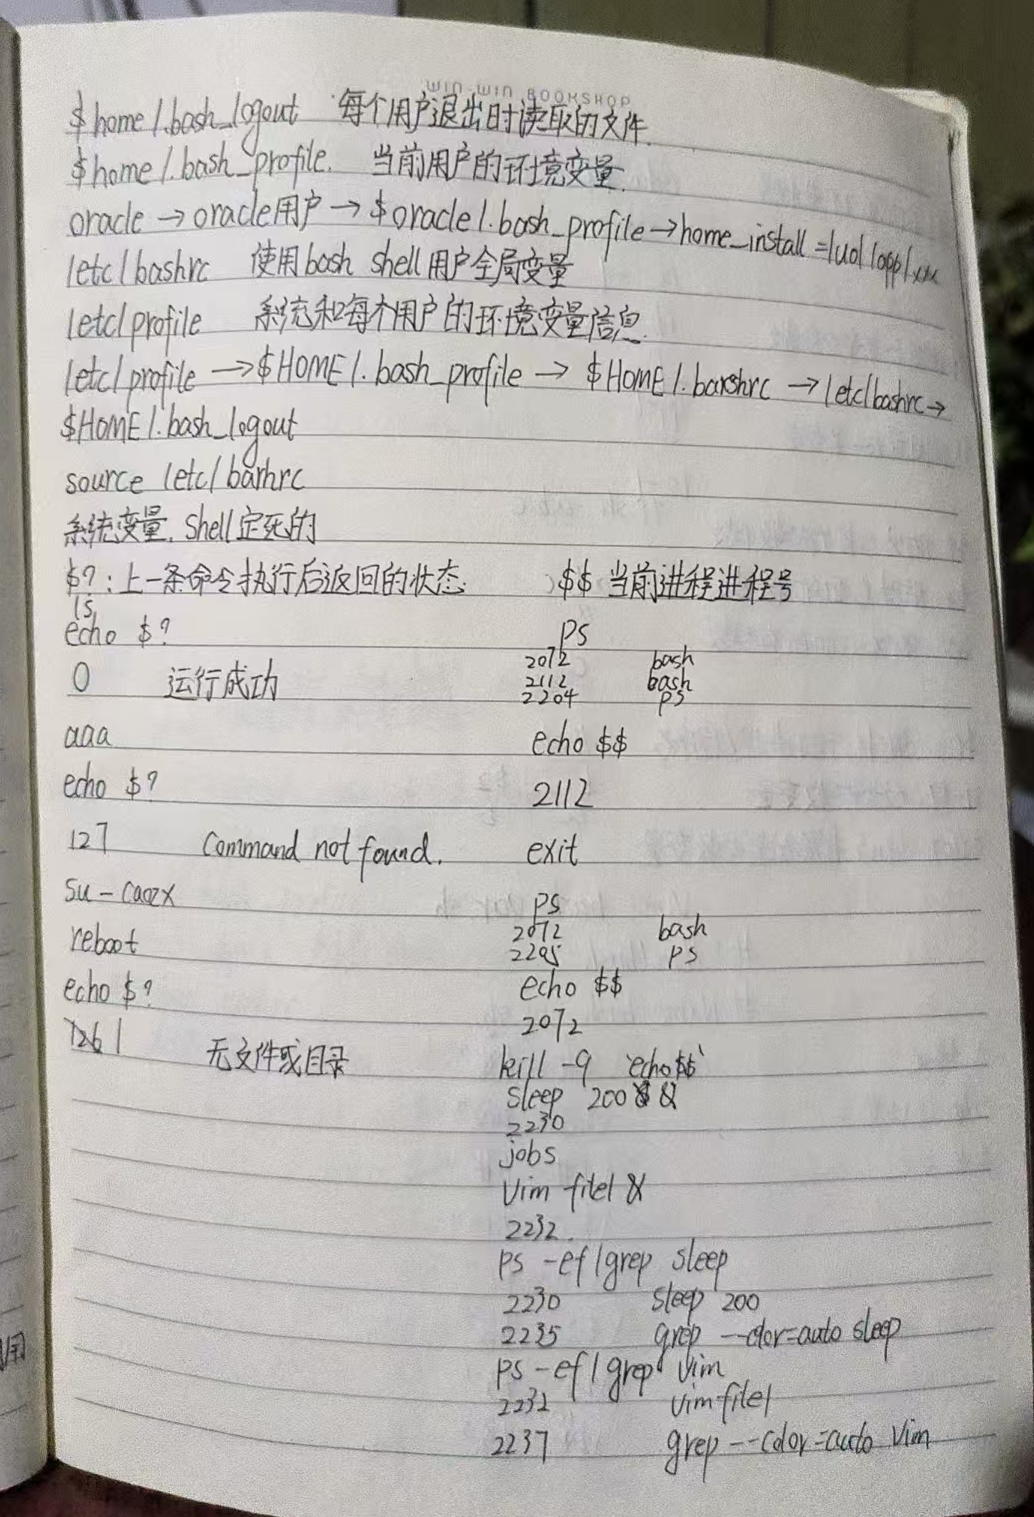 WIN-WIN BOOKSHOP
$home/.bash_logout 每个用户退出时读取的文件.
$home/.bash_profile. 当前用户的环境变量.
oracle → oracle用户 → $oracle/.bash_profile → home_install=/uol/app/xxx
/etc/bashrc 使用bash shell用户全局变量
/etc/profile 系统和每个用户的环境变量信息.
/etc/profile → $HOME/.bash_profile → $HOME/.barshrc → /etc/bashrc →
$HOME/.bash_logout
source /etc/barhrc
系统变量. Shell定死的
$?: 上一条命令执行后返回的状态.
$$ 当前进程进程号
ls
echo $?
0 运行成功
aaa
echo $?
127 Command not found.
su - caozx
reboot
echo $?
1261 无文件或目录
ps
2072 bash
2112 bash
2204 ps
echo $$
2112
exit
ps
2072 bash
2205 ps
echo $$
2072
kill -9 `echo$$`
sleep 200 &
2230
jobs
Vim file1 &
2232.
ps -ef/grep sleep
2230 sleep 200
2235 grep --clor=auto sleep
ps -ef/grep Vim
2232 Vim file1
2237 grep --color=auto Vim
用